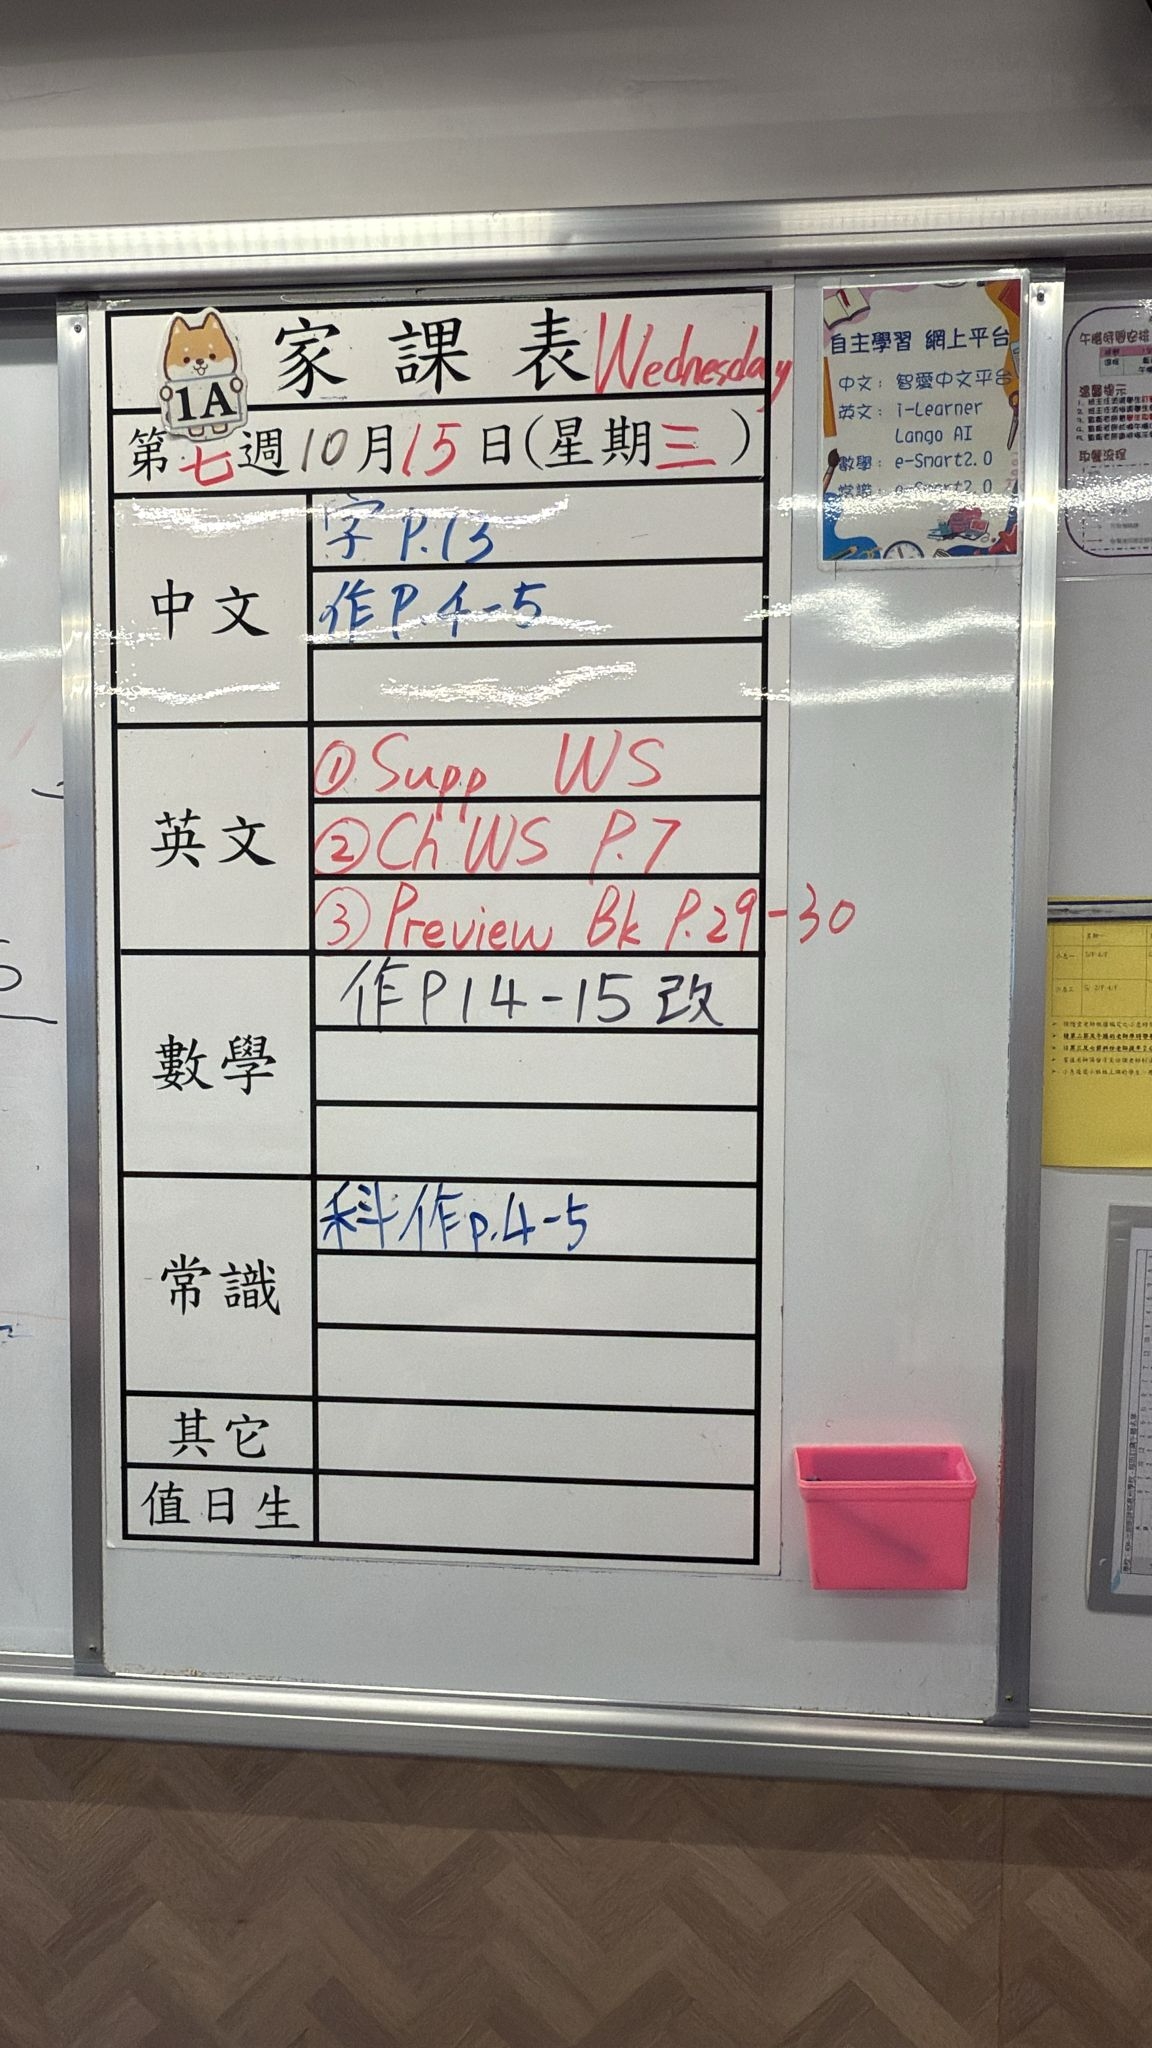 家課表 Wednesday
1A
第七週10月15日(星期三)
中文
字 P.13
作P.4-5
英文
① Supp WS
② Ch WS P.7
③ Preview Bk P.29-30
數學
作P14-15改
常識
科作p.4-5
其它
值日生
自主學習 網上平台
中文: 智愛中文平台
英文: i-Learner
Lango AI
數學: e-Smart2.0
常識: e-Smart2.0
午膳時間安排
溫馨提示
取餐流程